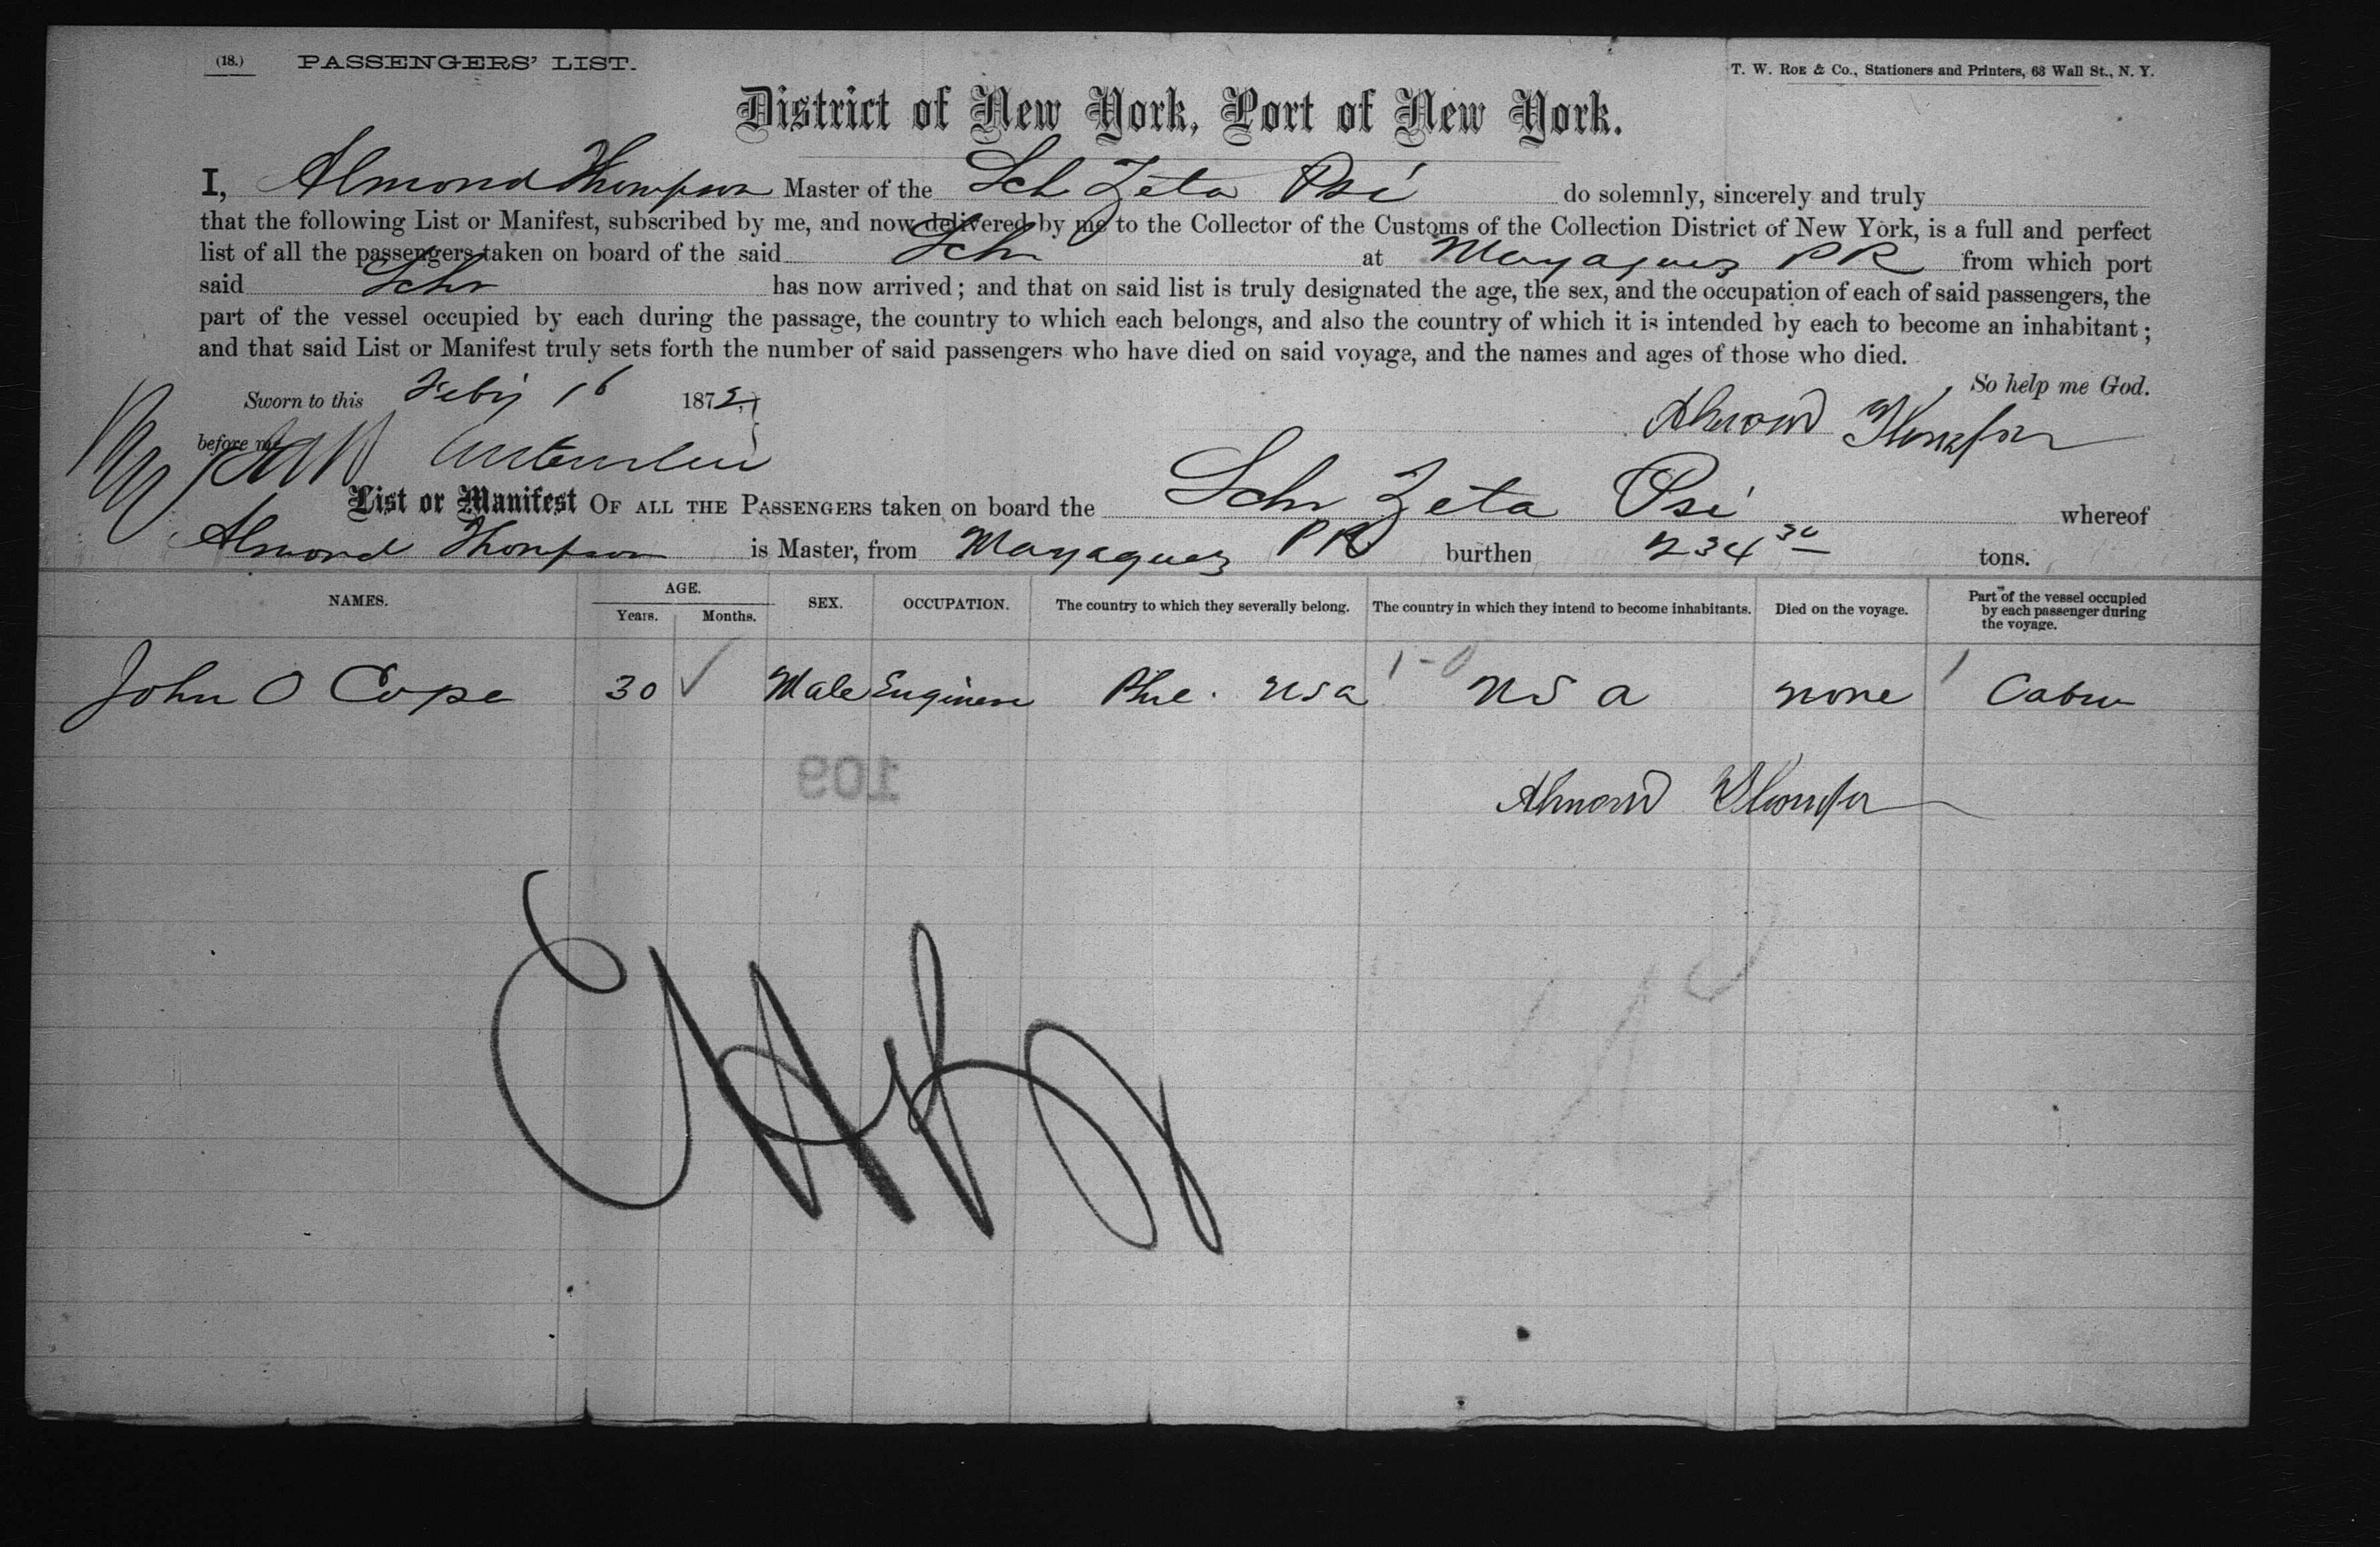 (18.) PASSENGERS' LIST.
T. W. ROE & Co., Stationers and Printers, 63 Wall St., N. Y.
District of New York, Port of New York.
I, Almond Thompson Master of the Sch Zeta Psi do solemnly, sincerely and truly
that the following List or Manifest, subscribed by me, and now delivered by me to the Collector of the Customs of the Collection District of New York, is a full and perfect
list of all the passengers taken on board of the said Schr at Mayaguez P R from which port
said Schr has now arrived; and that on said list is truly designated the age, the sex, and the occupation of each of said passengers, the
part of the vessel occupied by each during the passage, the country to which each belongs, and also the country of which it is intended by each to become an inhabitant;
and that said List or Manifest truly sets forth the number of said passengers who have died on said voyage, and the names and ages of those who died.
So help me God.
Sworn to this Feby 16 187
Almond Thompson
before me
List or Manifest OF ALL THE PASSENGERS taken on board the Schr Zeta Psi whereof
Almond Thompson is Master, from Mayaguez P R burthen 234 30 tons.
NAMES. AGE. Years. Months. SEX. OCCUPATION. The country to which they severally belong. The country in which they intend to become inhabitants. Died on the voyage. Part of the vessel occupied by each passenger during the voyage.
John O Cope 30 Male Engineer Phil. USA USA none Cabin
109
Almond Thompson